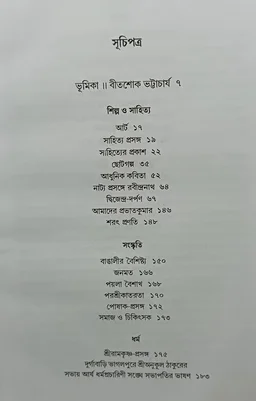 সূচিপত্র
ভূমিকা ॥ বীতশোক ভট্টাচার্য ৭
শিল্প ও সাহিত্য
আর্ট ১৭
সাহিত্য প্রসঙ্গ ১৯
সাহিত্যের প্রকাশ ২২
ছোটগল্প ৩৫
আধুনিক কবিতা ৫২
নাট্য প্রসঙ্গে রবীন্দ্রনাথ ৬৪
দ্বিজেন্দ্র-দর্পণ ৬৭
আমাদের প্রভাতকুমার ১৪৬
শরৎ প্রণতি ১৪৮
সংস্কৃতি
বাঙালীর বৈশিষ্ট্য ১৫০
জনমত ১৬৬
পয়লা বৈশাখ ১৬৮
পরশ্রীকাতরতা ১৭০
পোষাক-প্রসঙ্গ ১৭২
সমাজ ও চিকিৎসক ১৭৩
ধর্ম
শ্রীরামকৃষ্ণ-প্রসঙ্গ ১৭৫
দুর্গাবাড়ি ভাগলপুরে শ্রীঅনুকূল ঠাকুরের
সভায় আর্য ধর্মপ্রচারিণী সংঙ্ঘে সভাপতির ভাষণ ১৮৩